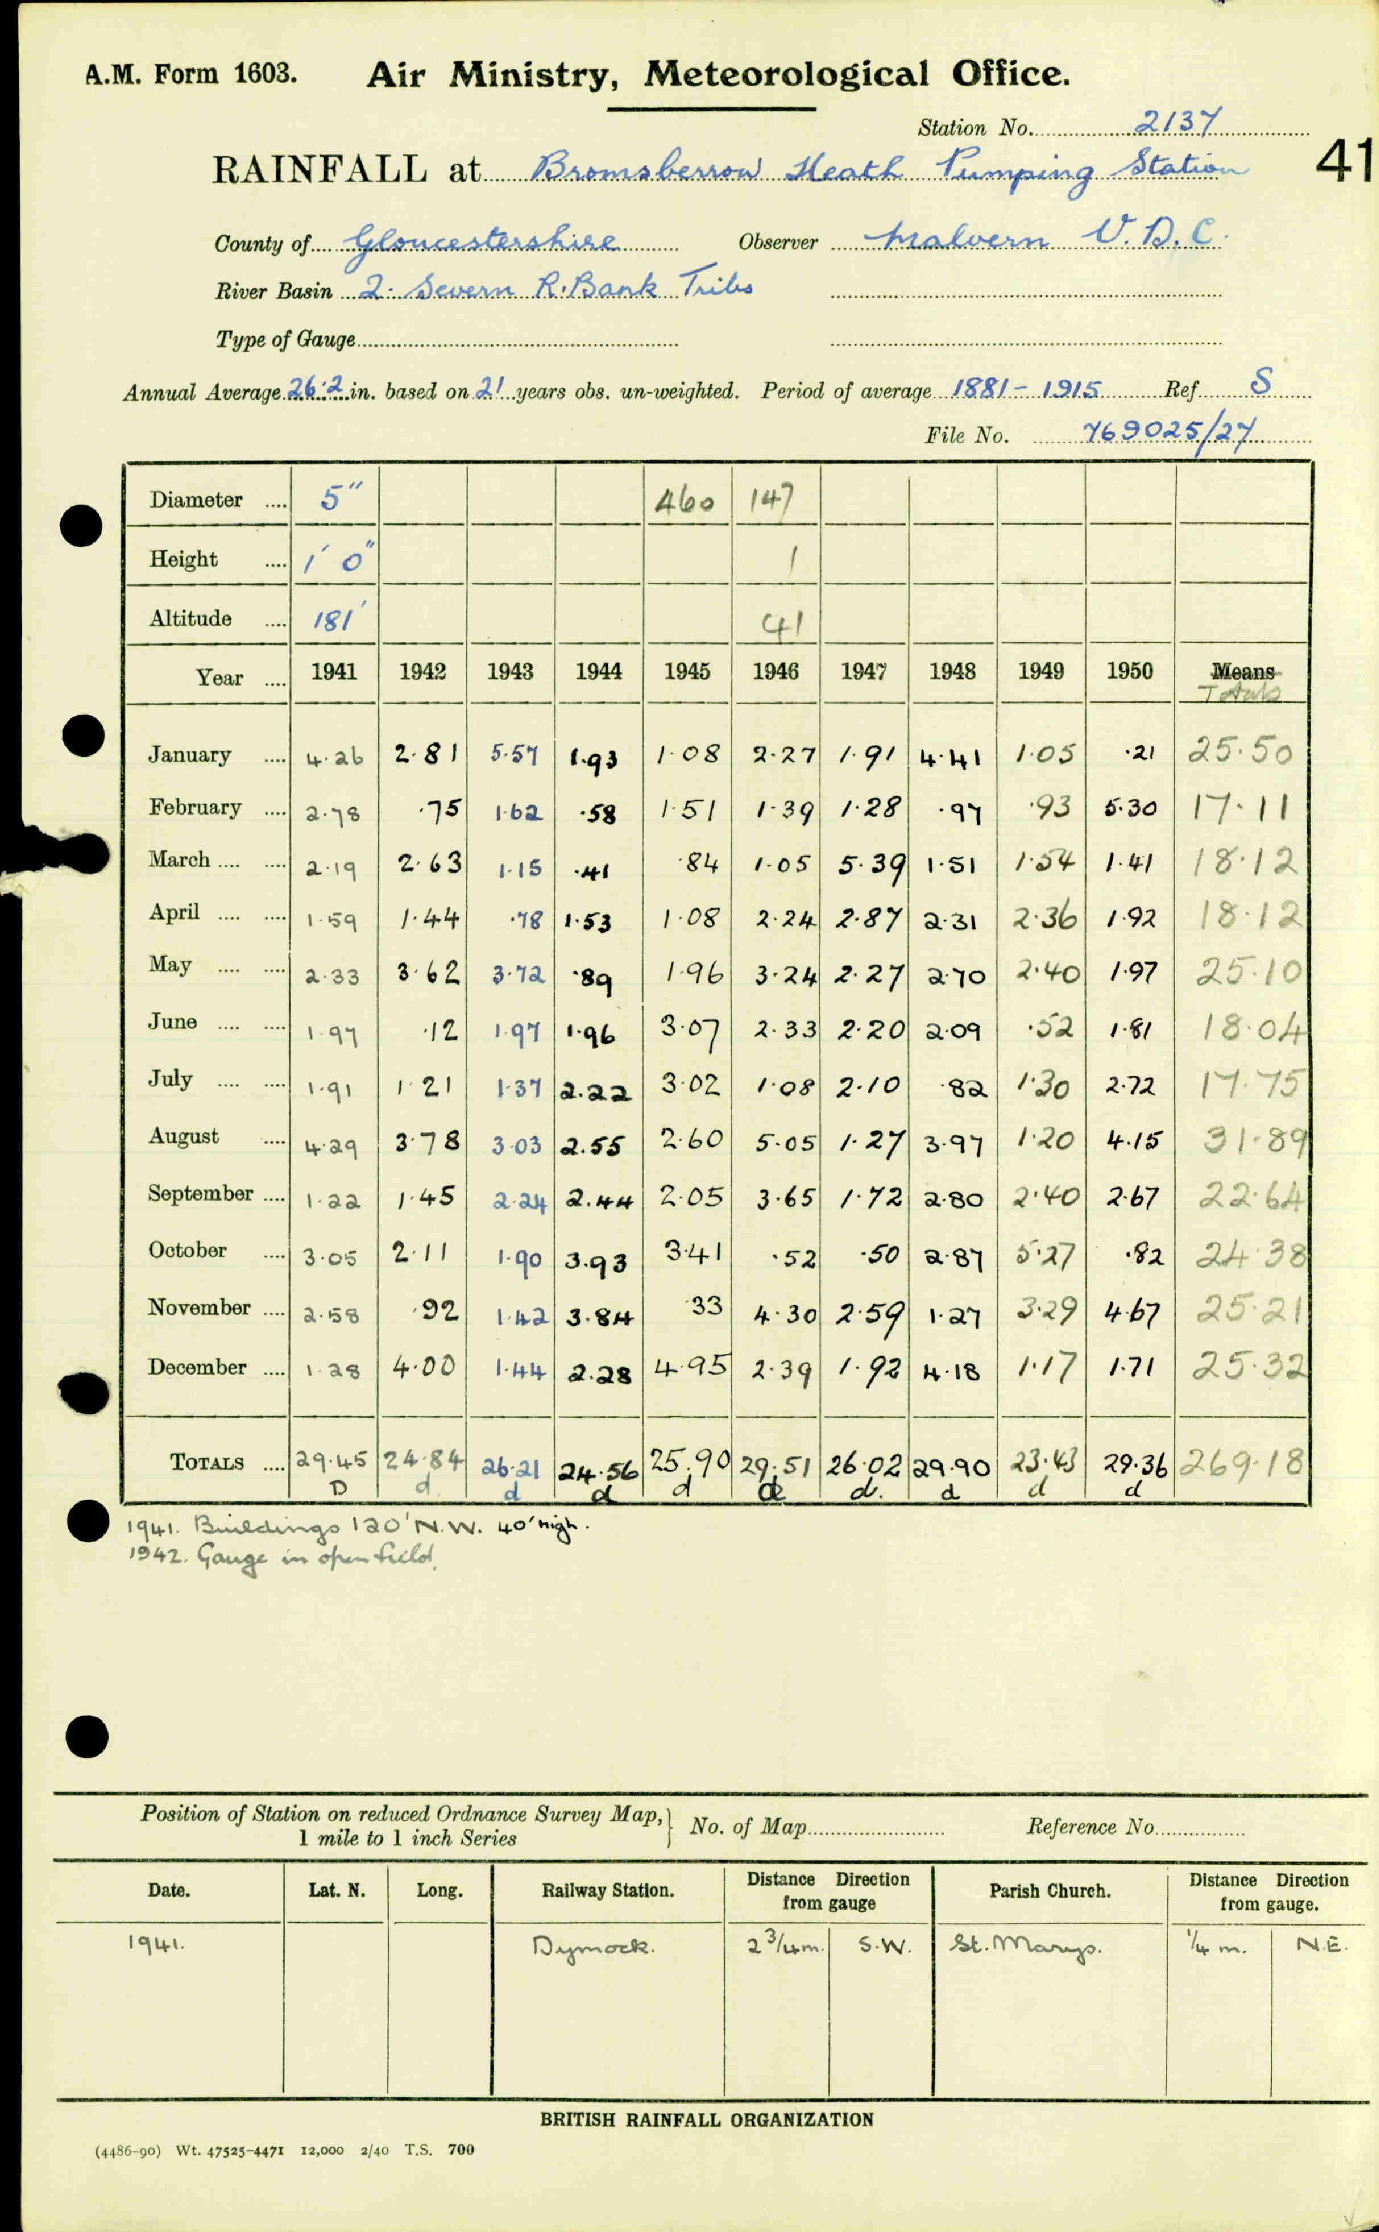 A.M. Form 1603. Air Ministry, Meteorological Office.
Station No. 2137
41
RAINFALL at Bromsberrow Heath Pumping Station
County of Gloucestershire Observer Malvern U.D.C.
River Basin 2. Severn R. Bank Tribs
Type of Gauge
Annual Average 26.2 in. based on 21 years obs. un-weighted. Period of average 1881-1915 Ref S
File No. 769025/27
Diameter .... 5" 460 147
Height .... 1' 0" 1
Altitude .... 181' 41
Year .... 1941 1942 1943 1944 1945 1946 1947 1948 1949 1950 Means
Totals
January .... 4.26 2.81 5.57 1.93 1.08 2.27 1.91 4.41 1.05 .21 25.50
February .... 2.78 .75 1.62 .58 1.51 1.39 1.28 .97 .93 5.30 17.11
March .... .... 2.19 2.63 1.15 .41 .84 1.05 5.39 1.51 1.54 1.41 18.12
April .... .... 1.59 1.44 .78 1.53 1.08 2.24 2.87 2.31 2.36 1.92 18.12
May .... .... 2.33 3.62 3.72 .89 1.96 3.24 2.27 2.70 2.40 1.97 25.10
June .... .... 1.97 .12 1.97 1.96 3.07 2.33 2.20 2.09 .52 1.81 18.04
July .... .... 1.91 1.21 1.37 2.22 3.02 1.08 2.10 .82 1.30 2.72 17.75
August .... 4.29 3.78 3.03 2.55 2.60 5.05 1.27 3.97 1.20 4.15 31.89
September .... 1.22 1.45 2.24 2.44 2.05 3.65 1.72 2.80 2.40 2.67 22.64
October .... 3.05 2.11 1.90 3.93 3.41 .52 .50 2.87 5.27 .82 24.38
November .... 2.58 .92 1.42 3.84 .33 4.30 2.59 1.27 3.29 4.67 25.21
December .... 1.28 4.00 1.44 2.28 4.95 2.39 1.92 4.18 1.17 1.71 25.32
TOTALS .... 29.45 24.84 26.21 24.56 25.90 29.51 26.02 29.90 23.43 29.36 269.18
D d d d d d d. d d d
1941. Buildings 120' N.W. 40' high.
1942. Gauge in open field.
Position of Station on reduced Ordnance Survey Map, 1 mile to 1 inch Series } No. of Map Reference No.
Date. Lat. N. Long. Railway Station. Distance Direction from gauge Parish Church. Distance Direction from gauge.
1941. Dymock. 2 3/4 m. S.W. St. Marys. 1/4 m. N.E.
BRITISH RAINFALL ORGANIZATION
(4486-90) Wt. 47525-4471 12,000 2/40 T.S. 700